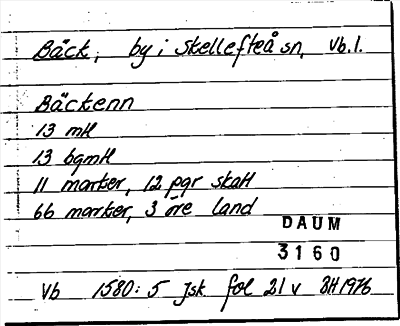 Bäck, by i Skellefteå sn, Vb.l.
Bäckenn
13 mtl
13 bgmtl
11 marker, 12 pgr skatt
66 marker, 3 öre land
DAUM
3160
Vb 1580: 5 Jsk fol 21 v BH 1976